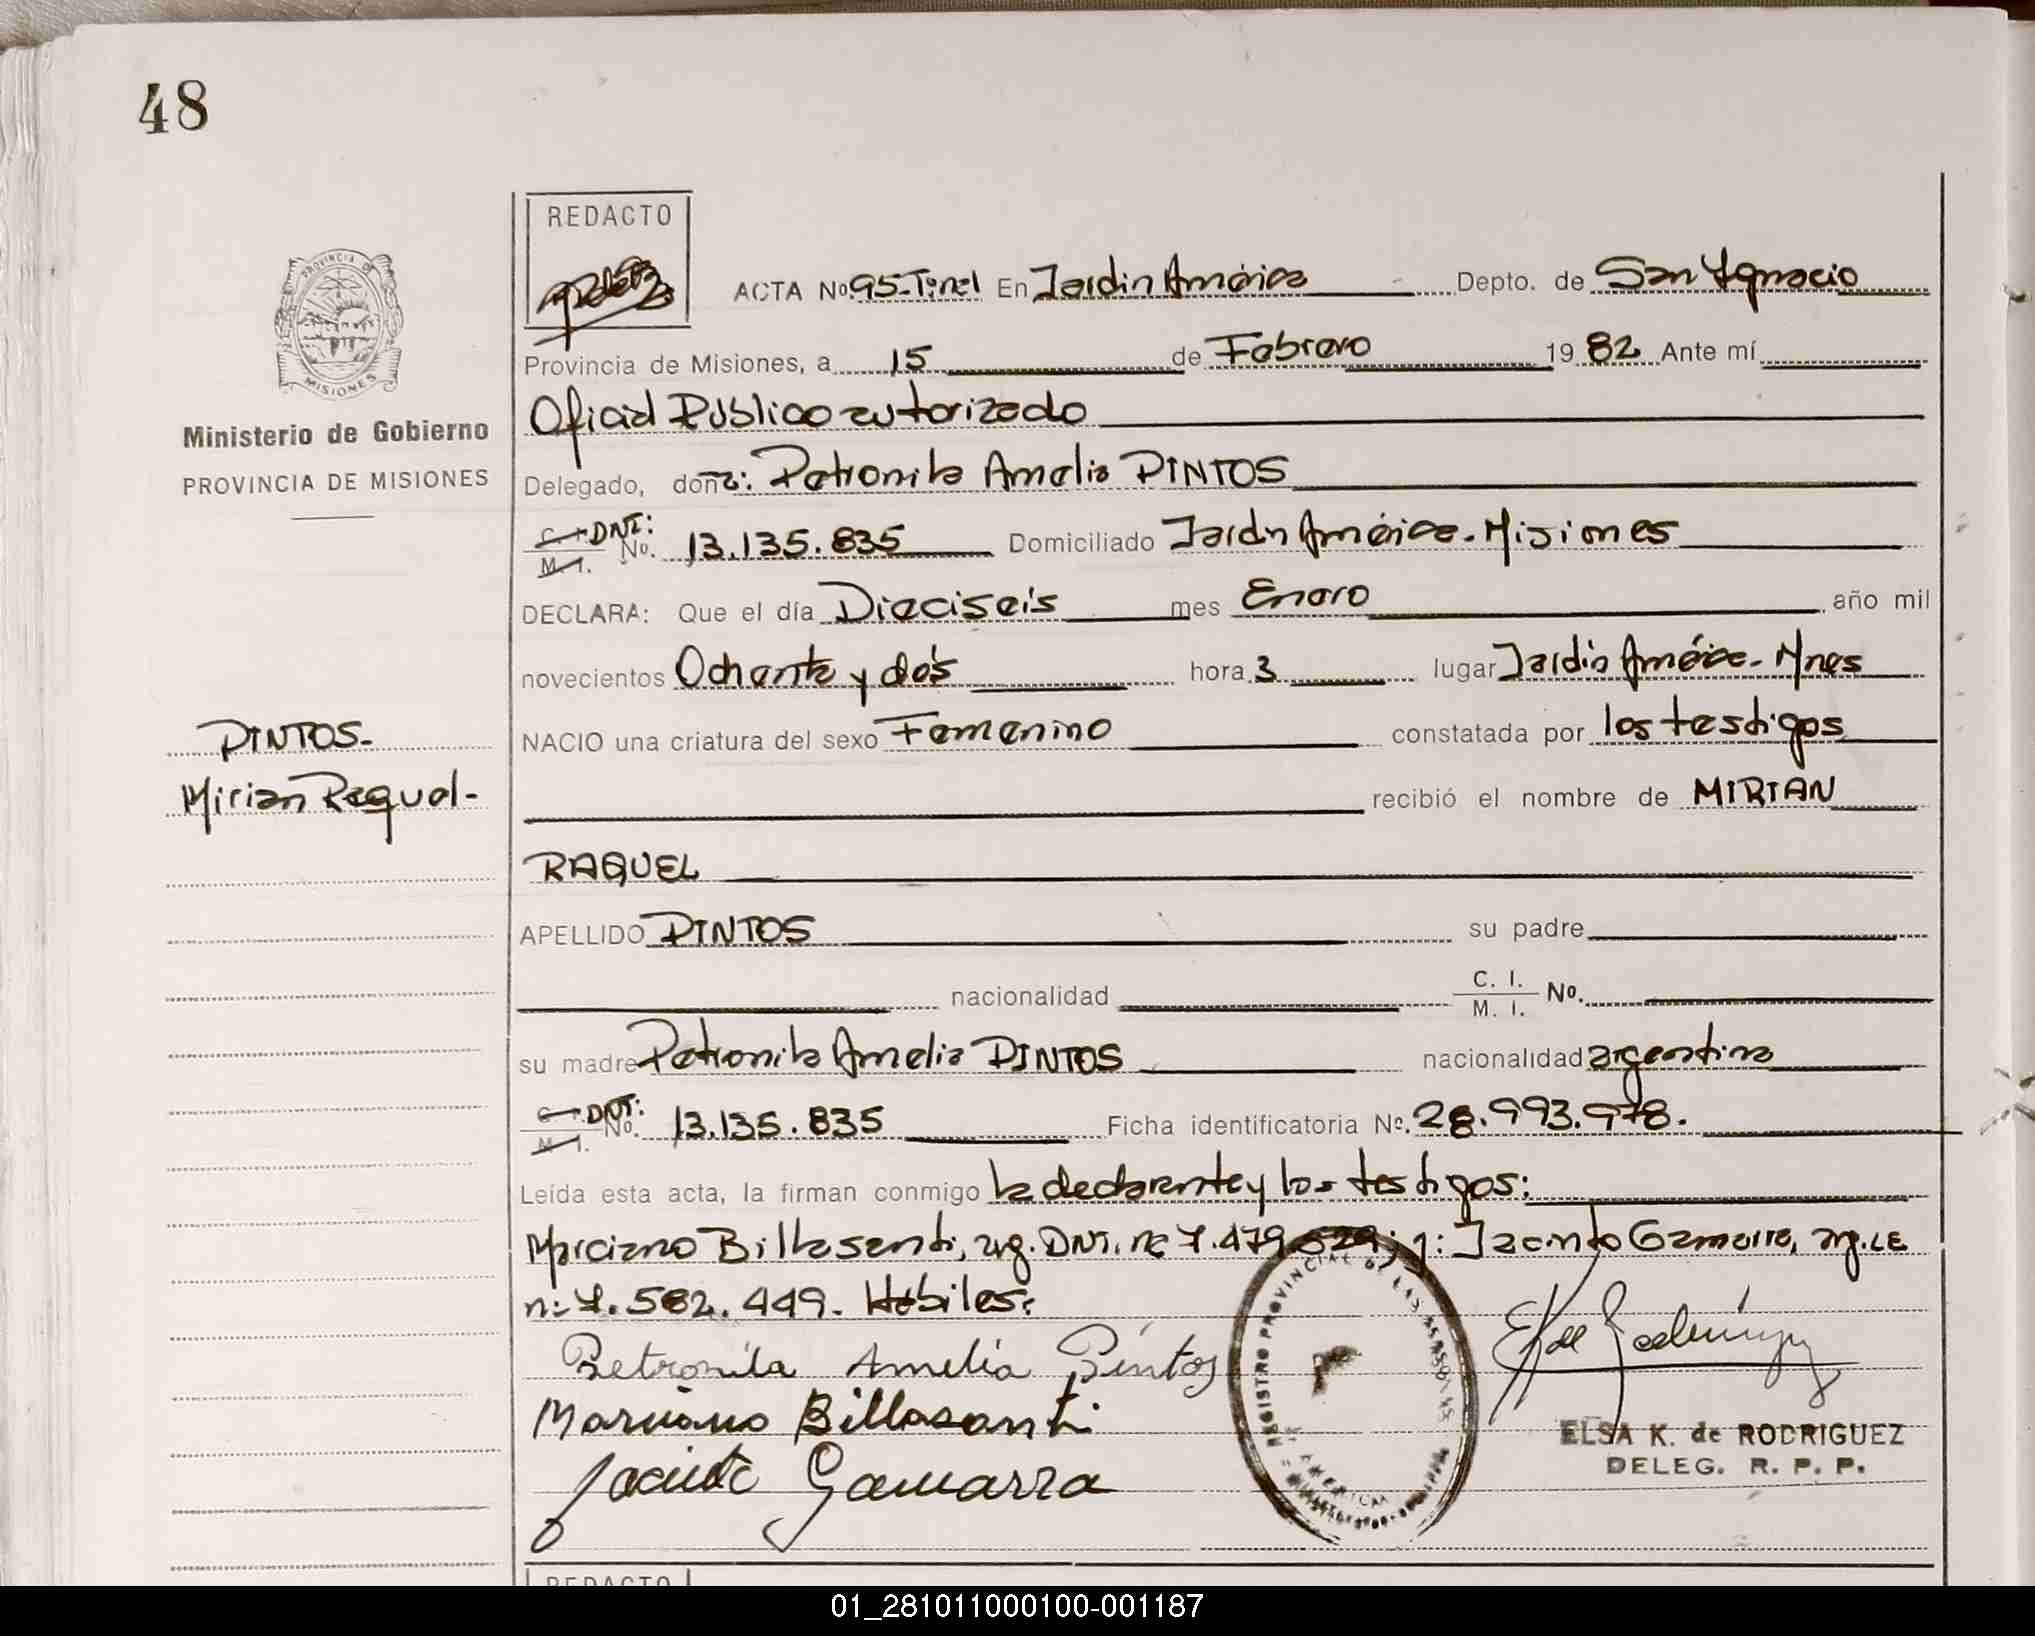 48
REDACTO
PROVINCIA DE
MISIONES
Ministerio de Gobierno
PROVINCIA DE MISIONES
ACTA No. 95-T:nel En Jardin América Depto. de San Ygnacio
Provincia de Misiones, a 15 de Febrero 1982 Ante mí
Oficial Publico autorizado
Delegado, doña: Petronila Amelia PINTOS
C. I. DNI: M. I. No. 13.135.835 Domiciliado Jardin América-Misiones
DECLARA: Que el día Dieciseis mes Enero año mil
novecientos Ochenta y dós hora 3 lugar Jardin América- Mnes
NACIO una criatura del sexo Femenino constatada por los testigos
PINTOS-
Mirian Raquel-
recibió el nombre de MIRIAN
RAQUEL
APELLIDO PINTOS su padre
nacionalidad C. I. M. I. No.
su madre Petronila Amelia PINTOS nacionalidad argentina
C. I. DNI: M. I. No. 13.135.835 Ficha identificatoria No. 28.993.978.
Leída esta acta, la firman conmigo la declarante y los testigos:
Marciano Billasanti, arg. DNI. nº 7.479.529; y: Jacinto Gamarra, arg. LE
n: 7.582.449. Hábiles:
Petronila Amelia Pintos
Marciano Billasanti
Jacinto Gamarra
REGISTRO PROVINCIAL DE LAS PERSONAS
ELSA K. de RODRIGUEZ
DELEG. R. P. P.
REDACTO
01_281011000100-001187